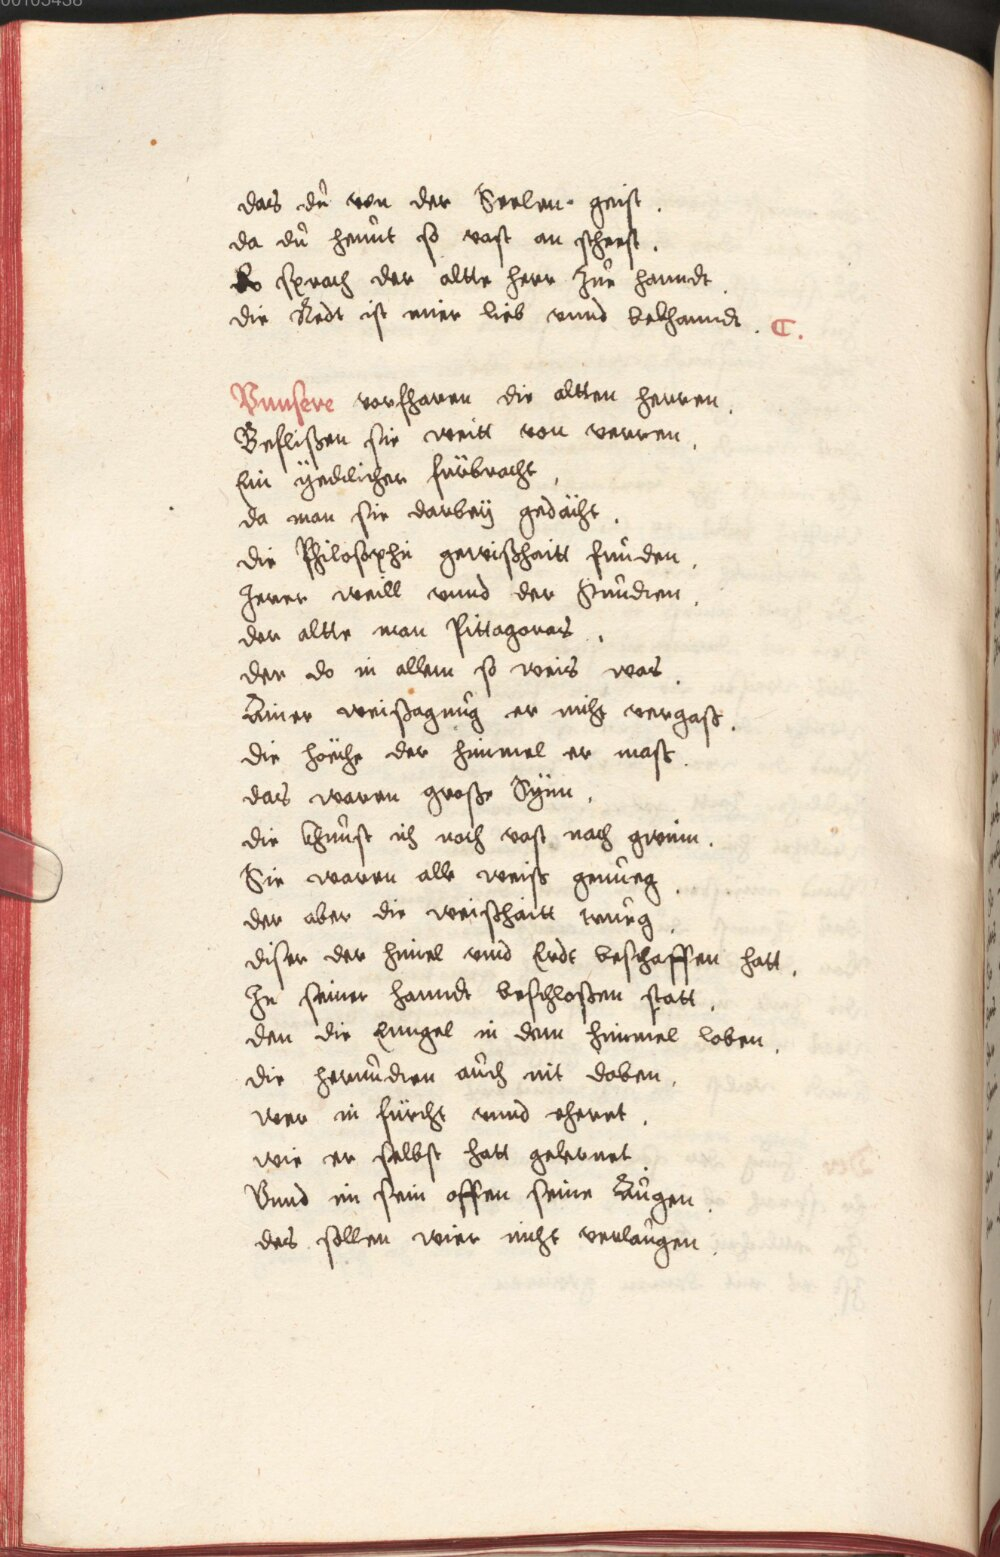 00105438
das du von der Seelen geist.
da du heünt so vast an schreist.
Do sprach der altte herr Zue hanndt.
die Redt ist mier lieb vnnd bekhanndt. C.
Vnnsere vorfharen die altten herren.
Beflißen sie weitt von verren.
Ein yedlicher fürbracht,
da man sie darbeÿ gedächt.
die Philosophi gewißhaitt funden.
Jerer weill vnnd der Stundien.
der altte man Pittagoras.
der do in allem so weis was.
Ainer weißagung er nicht vergaß.
die höche der himmel er mast.
das waren große Synn.
die khunst ich noch vast nach gwinn.
Sie waren alle weiß genueg.
der aber die weißhaitt trueg
diser der himel vnd Erdt beschaffen hatt.
In seiner hanndt beschloßen statt.
den die Ennget in dem himmel loben.
die herundien auch nit doben.
wer in fürcht vnnd eheret.
wie er selbst hatt gelernet
Vnnd im sein offen seine Augen.
des sollen wier nicht verlaugen.